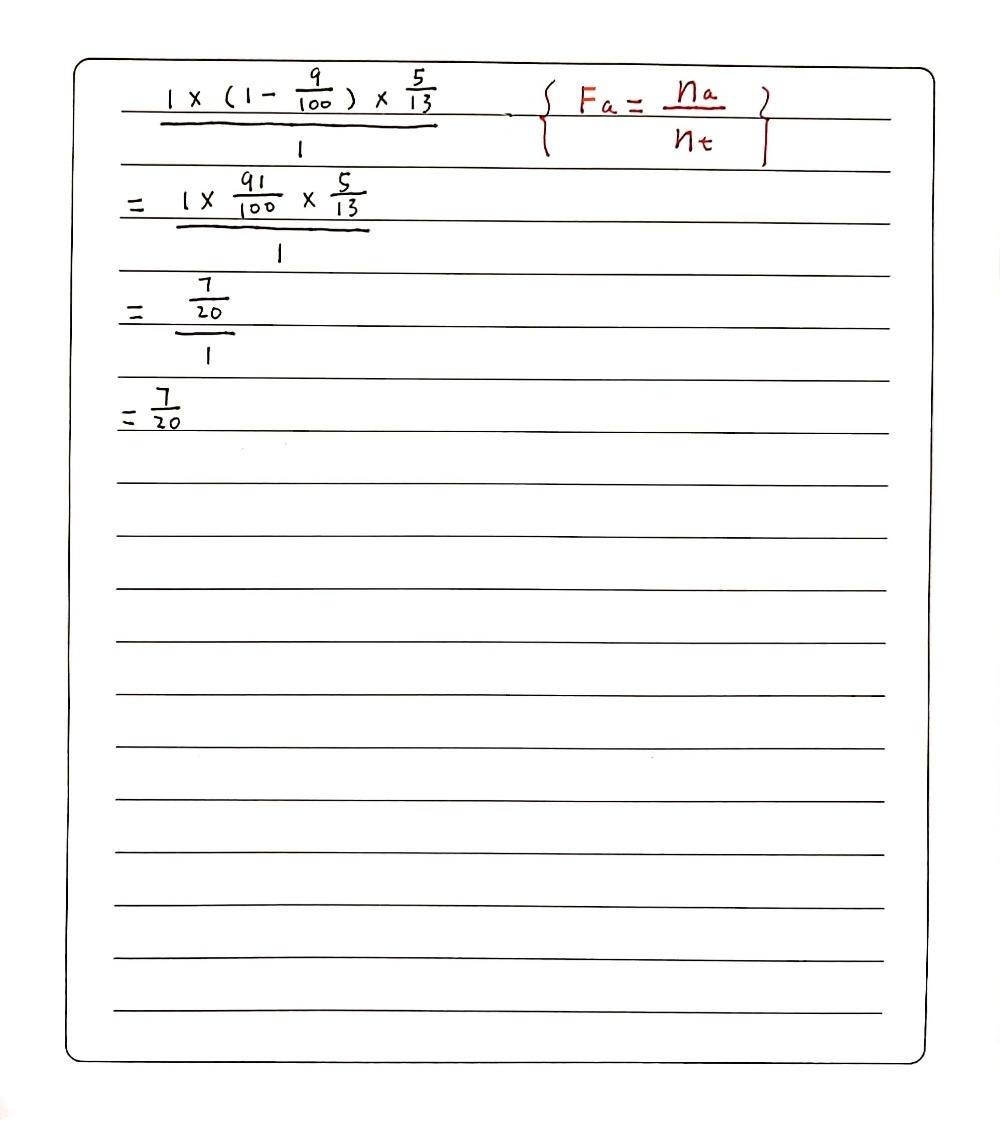 \frac{1 \times (1 - \frac{9}{100}) \times \frac{5}{13}}{1} { Fa = \frac{na}{nt} }
= \frac{1 \times \frac{91}{100} \times \frac{5}{13}}{1}
= \frac{\frac{7}{20}}{1}
= \frac{7}{20}